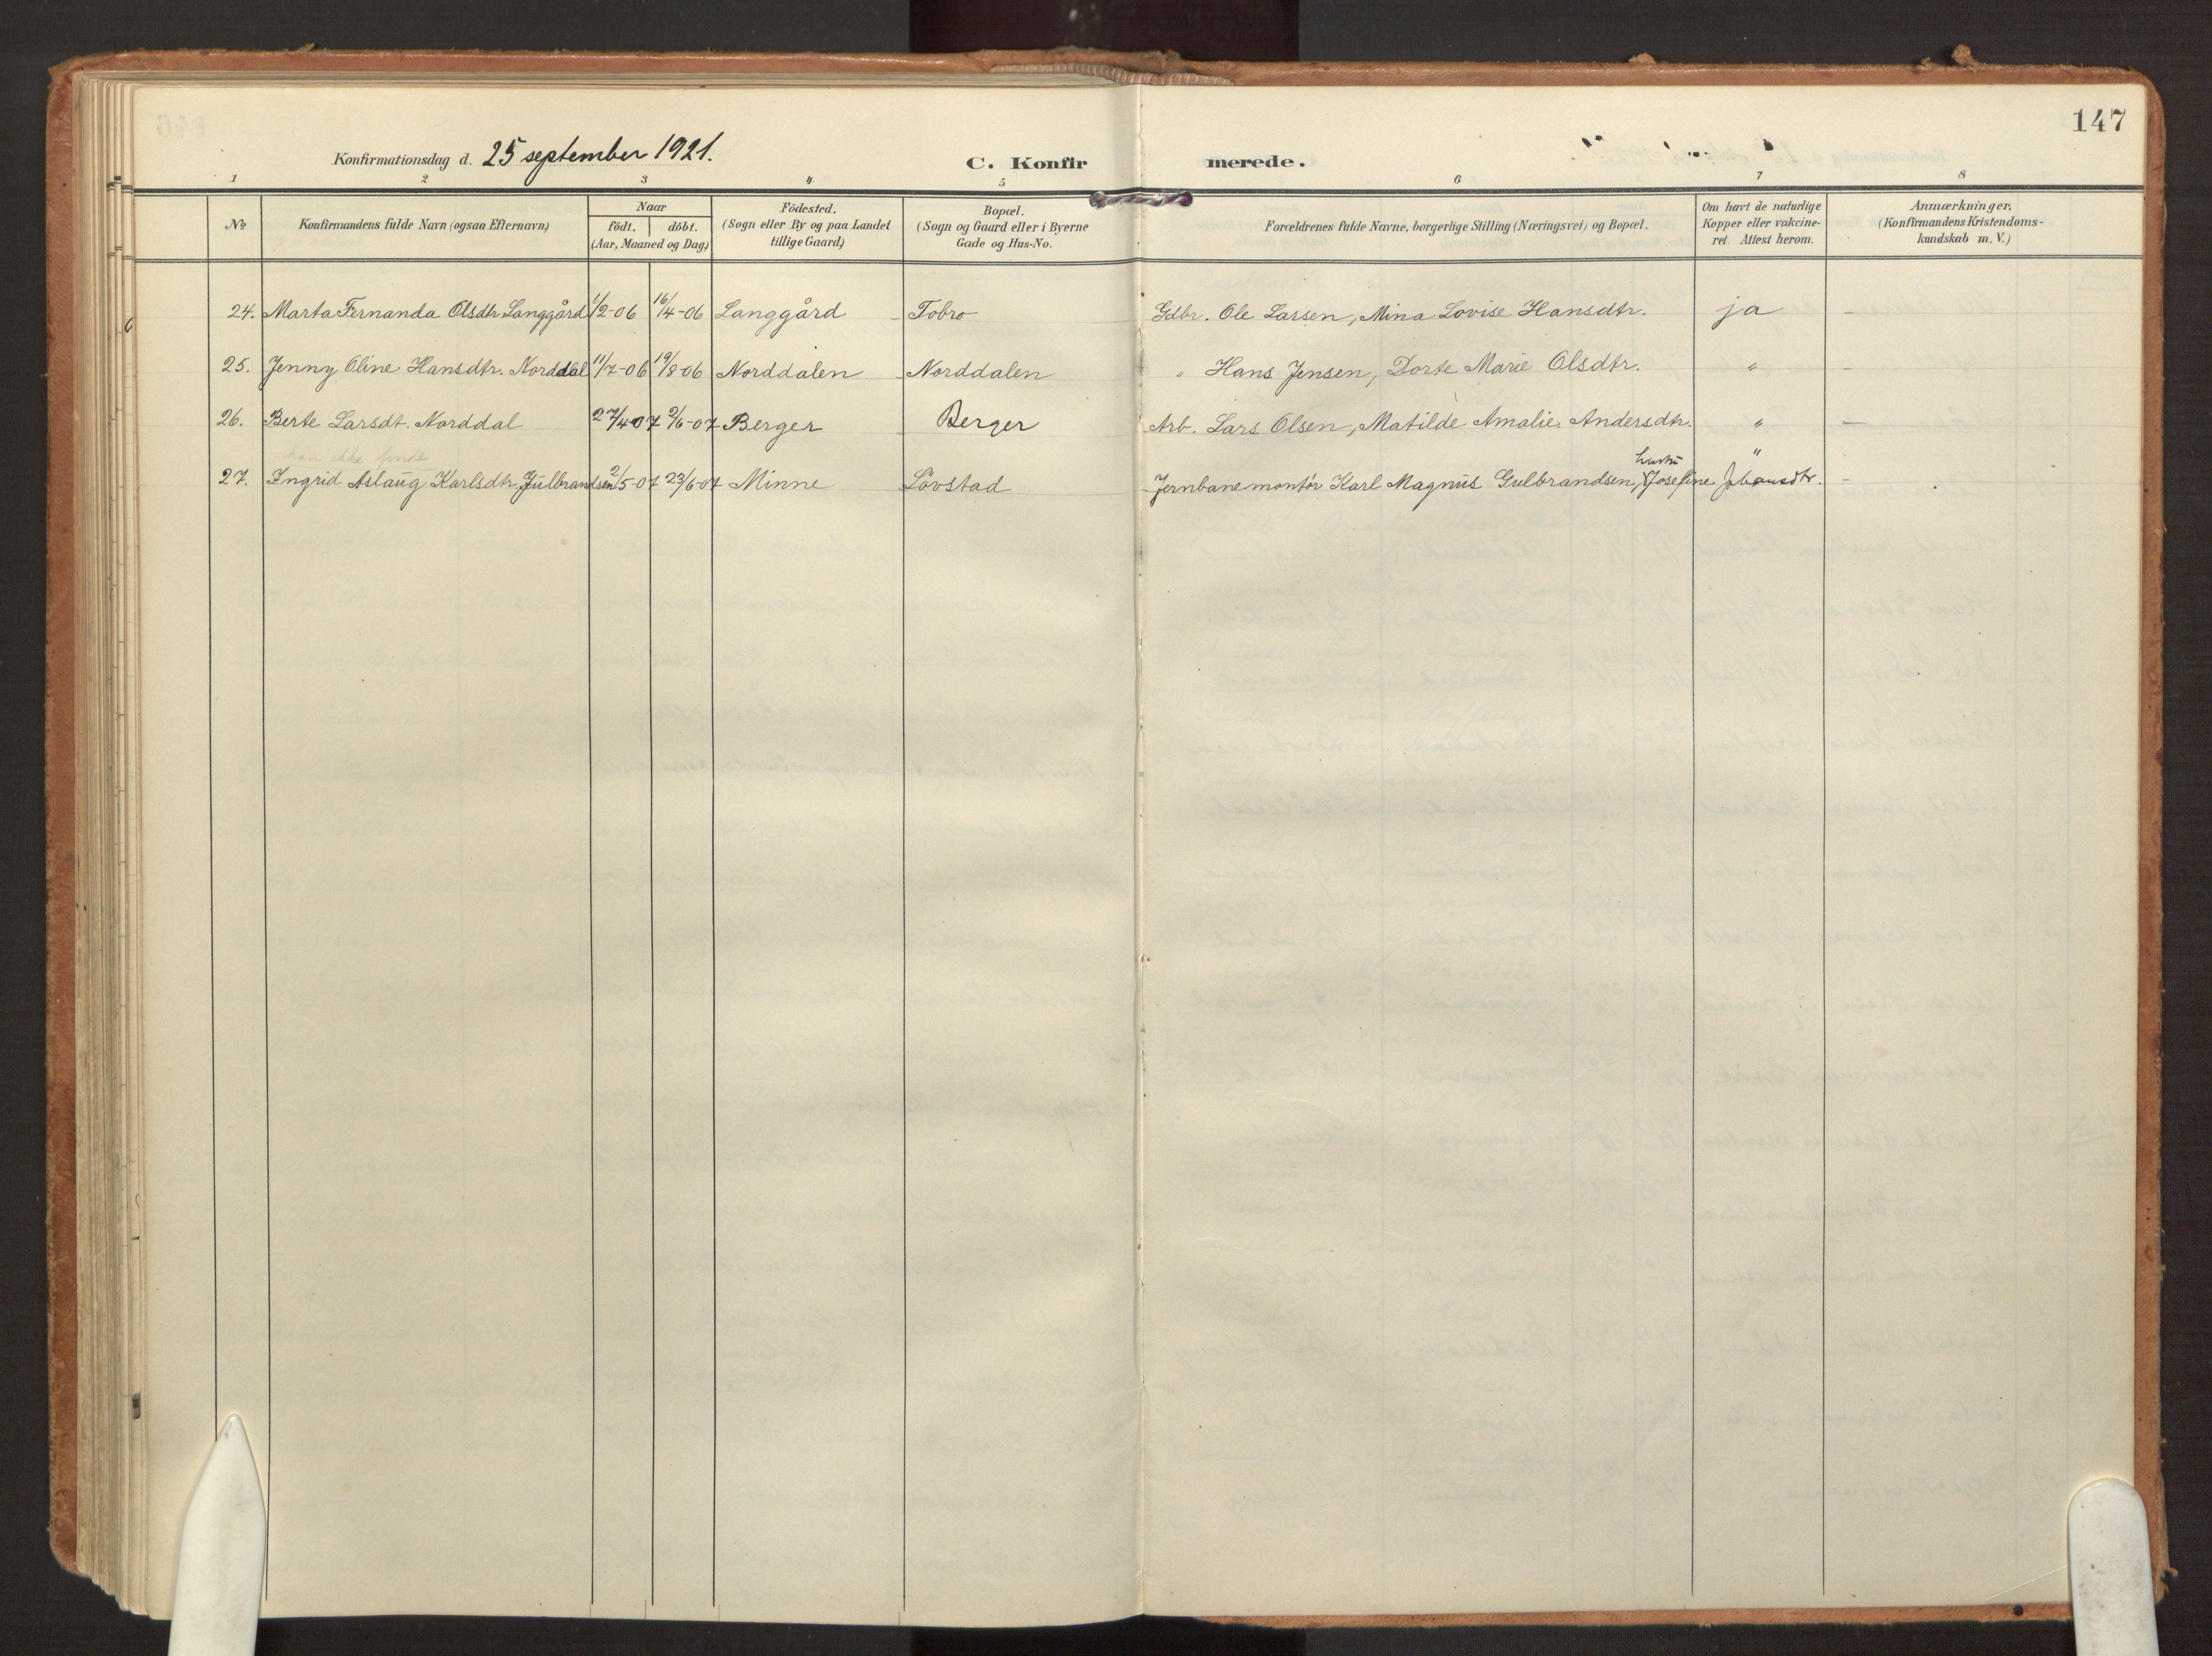 147
Konfirmationsdag d. 25 september 1921.
C. Konfirmerede.
1 2 3 4 5 6 7 8
No
Konfirmandens fulde Navn (ogsaa Efternavn)
Naar
födt. döbt.
(Aar, Maaned og Dag)
Födested.
(Sogn eller By og paa Landet
tillige Gaard)
Bopæl.
(Sogn og Gaard eller i Byerne
Gade og Hus-No.
Forældrenes fulde Navne, borgerlige Stilling (Næringsvei) og Bopæl.
Om havt de naturlige
Kopper eller vakcine-
ret. Attest herom.
Anmærkninger.
(Konfirmandens Kristendoms-
kundskab m. V.)
24. Marta Fernanda Olsdtr. Langgård 1/2-06 16/4-06 Langgård - Tobro Gdbr. Ole Larsen, Mina Lovise Hansdtr. ja -
25. Jenny Oline Hansdtr. Norddal 11/7-06 19/8-06 Norddalen - Norddalen " Hans Jensen, Dorte Marie Olsdtr. " -
26. Berte Larsdt. Norddal 27/4-07 2/6-07 Berger - Berger Arb. Lars Olsen, Matilde Amalie Andersdtr. " -
kan ikke finde
27. Ingrid Aslaug Karlsdtr. Gulbrandsen 2/5-07 23/6-07 Minne Lövstad Jernbanemontör Karl Magnus Gulbrandsen, hustru Josefine Johansdtr. " -